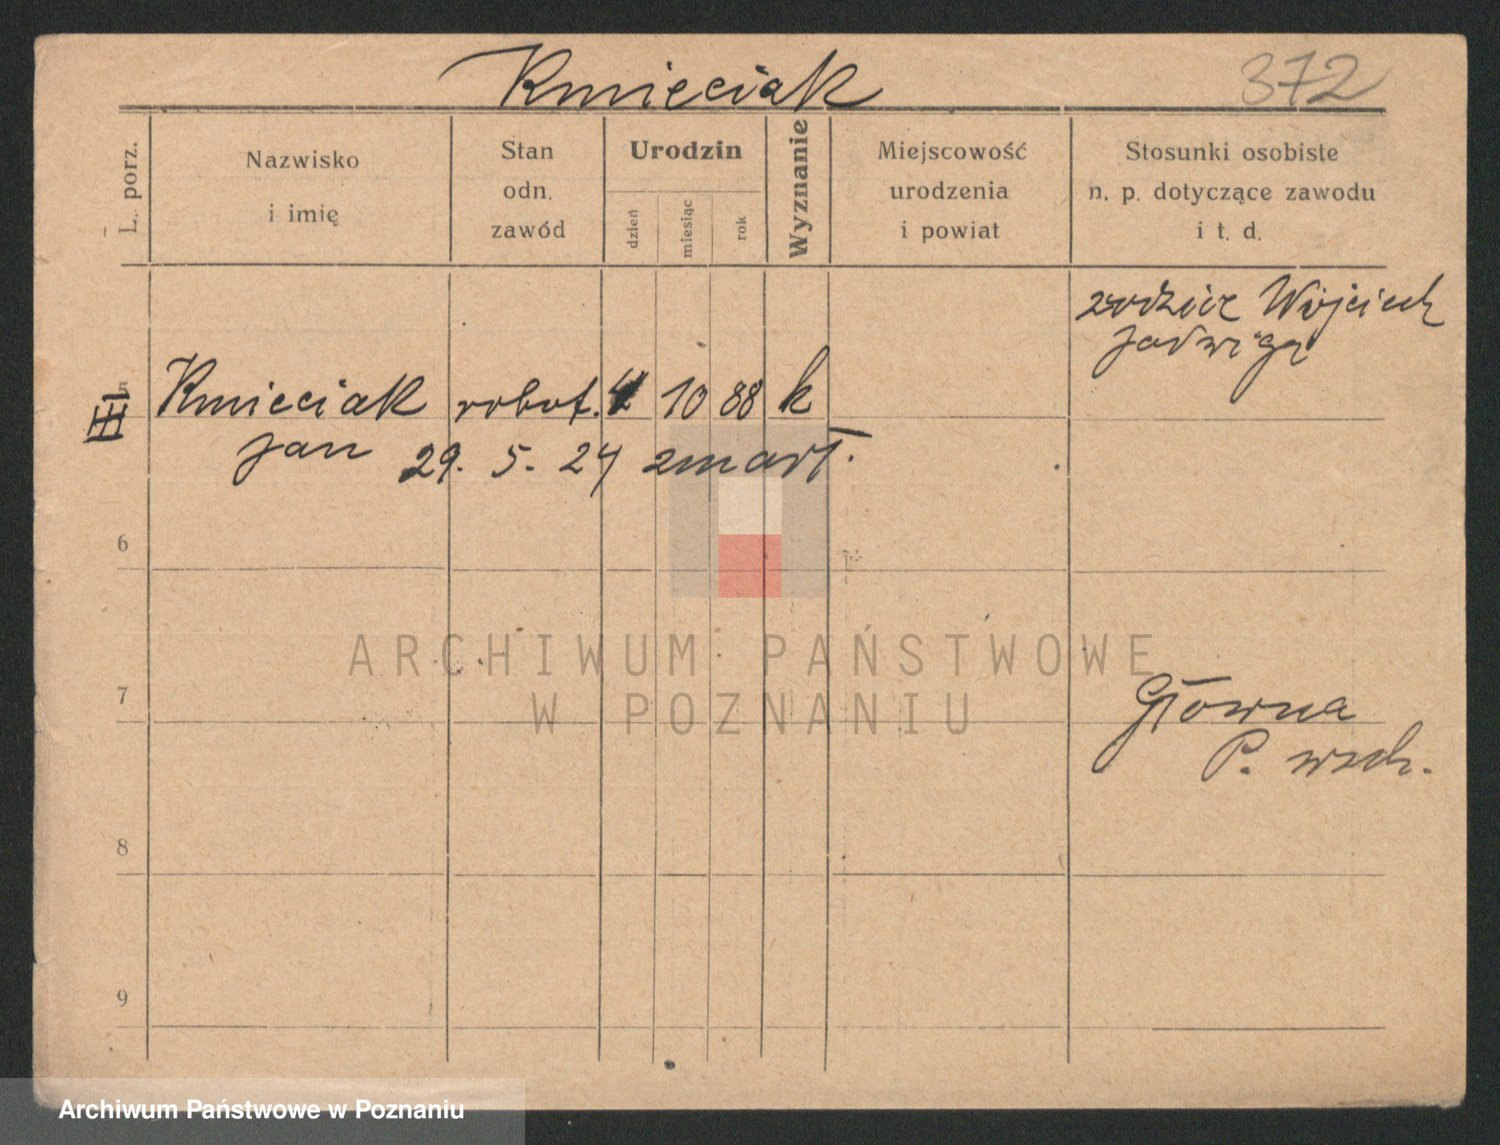 Kmieciak
372
L. porz.
Nazwisko
i imię
Stan
odn.
zawód
Urodzin
dzień
miesiąc
rok
Wyznanie
Miejscowość
urodzenia
i powiat
Stosunki osobiste
n. p. dotyczące zawodu
i t. d.
rodzice Wojciech
Jadwiga
5
III Kmieciak robot. 4 10 88 k
Jan 29. 5. 24 zmarł.
6
ARCHIWUM PAŃSTWOWE
W POZNANIU
7
Główna
P. wsch.
8
9
Archiwum Państwowe w Poznaniu